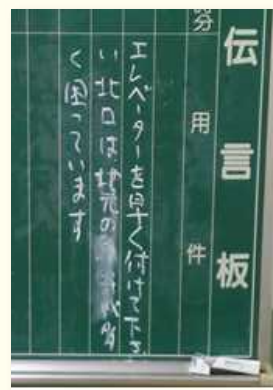 伝言板
分
用件
エレベーターを早く付けて下さ
い 北口は地元の
く困っています